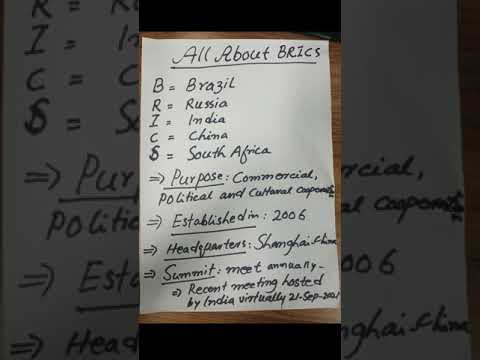 All About BRICS
B = Brazil
R = Russia
I = India
C = China
S = South Africa
⇒ Purpose: Commercial,
Political and Cultural cooperation
⇒ Established in : 2006
⇒ Headquarters: Shanghai-China
⇒ Summit: meet annually-
⇒ Recent meeting hosted
by India virtually 21-Sep-2021